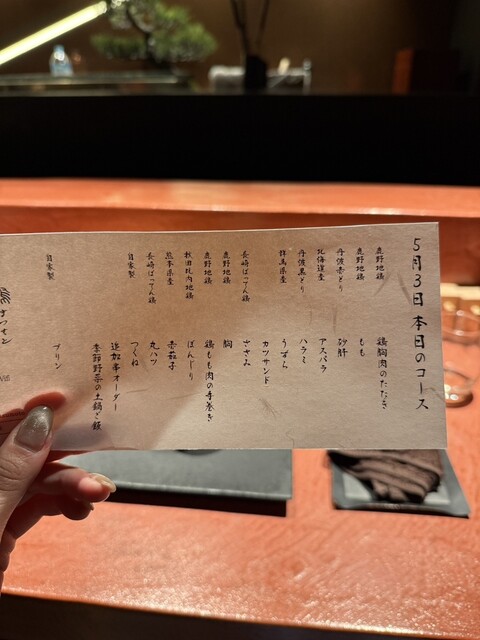 5月3日 本日のコース
鹿野地鶏 鶏胸肉のたたき
鹿野地鶏 もも
丹波赤どり 砂肝
北海道産 アスパラ
丹波黒どり ハラミ
群馬県産 うずら
カツサンド
長崎ばってん鶏 ささみ
鹿野地鶏 胸
鹿野地鶏 鶏もも肉の手巻き
秋田比内地鶏 ぼんじり
熊本県産 赤茄子
長崎ばってん鶏 丸ハツ
自家製 つくね
追加串オーダー
季節野菜の土鍋ご飯
自家製 プリン